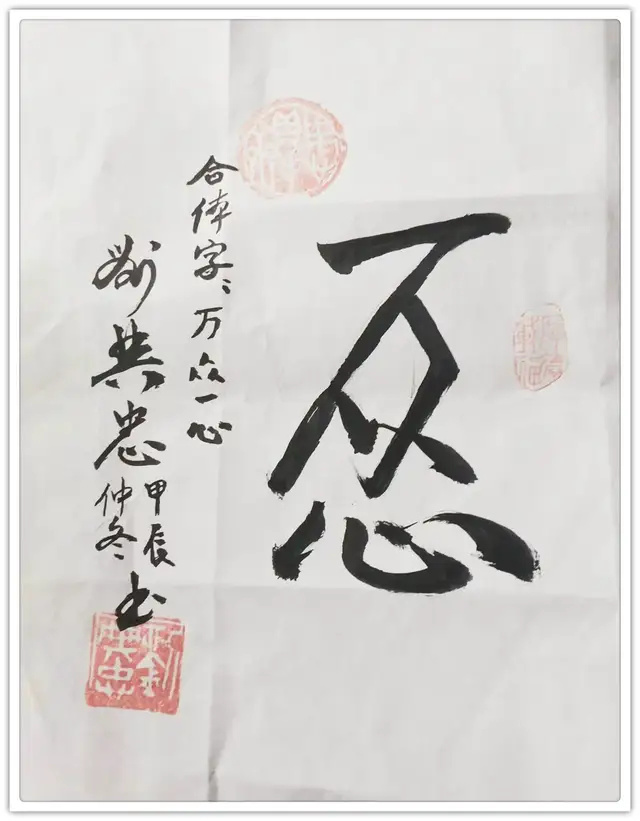 合体字:万众一心
刘英忠
甲辰
仲冬
书